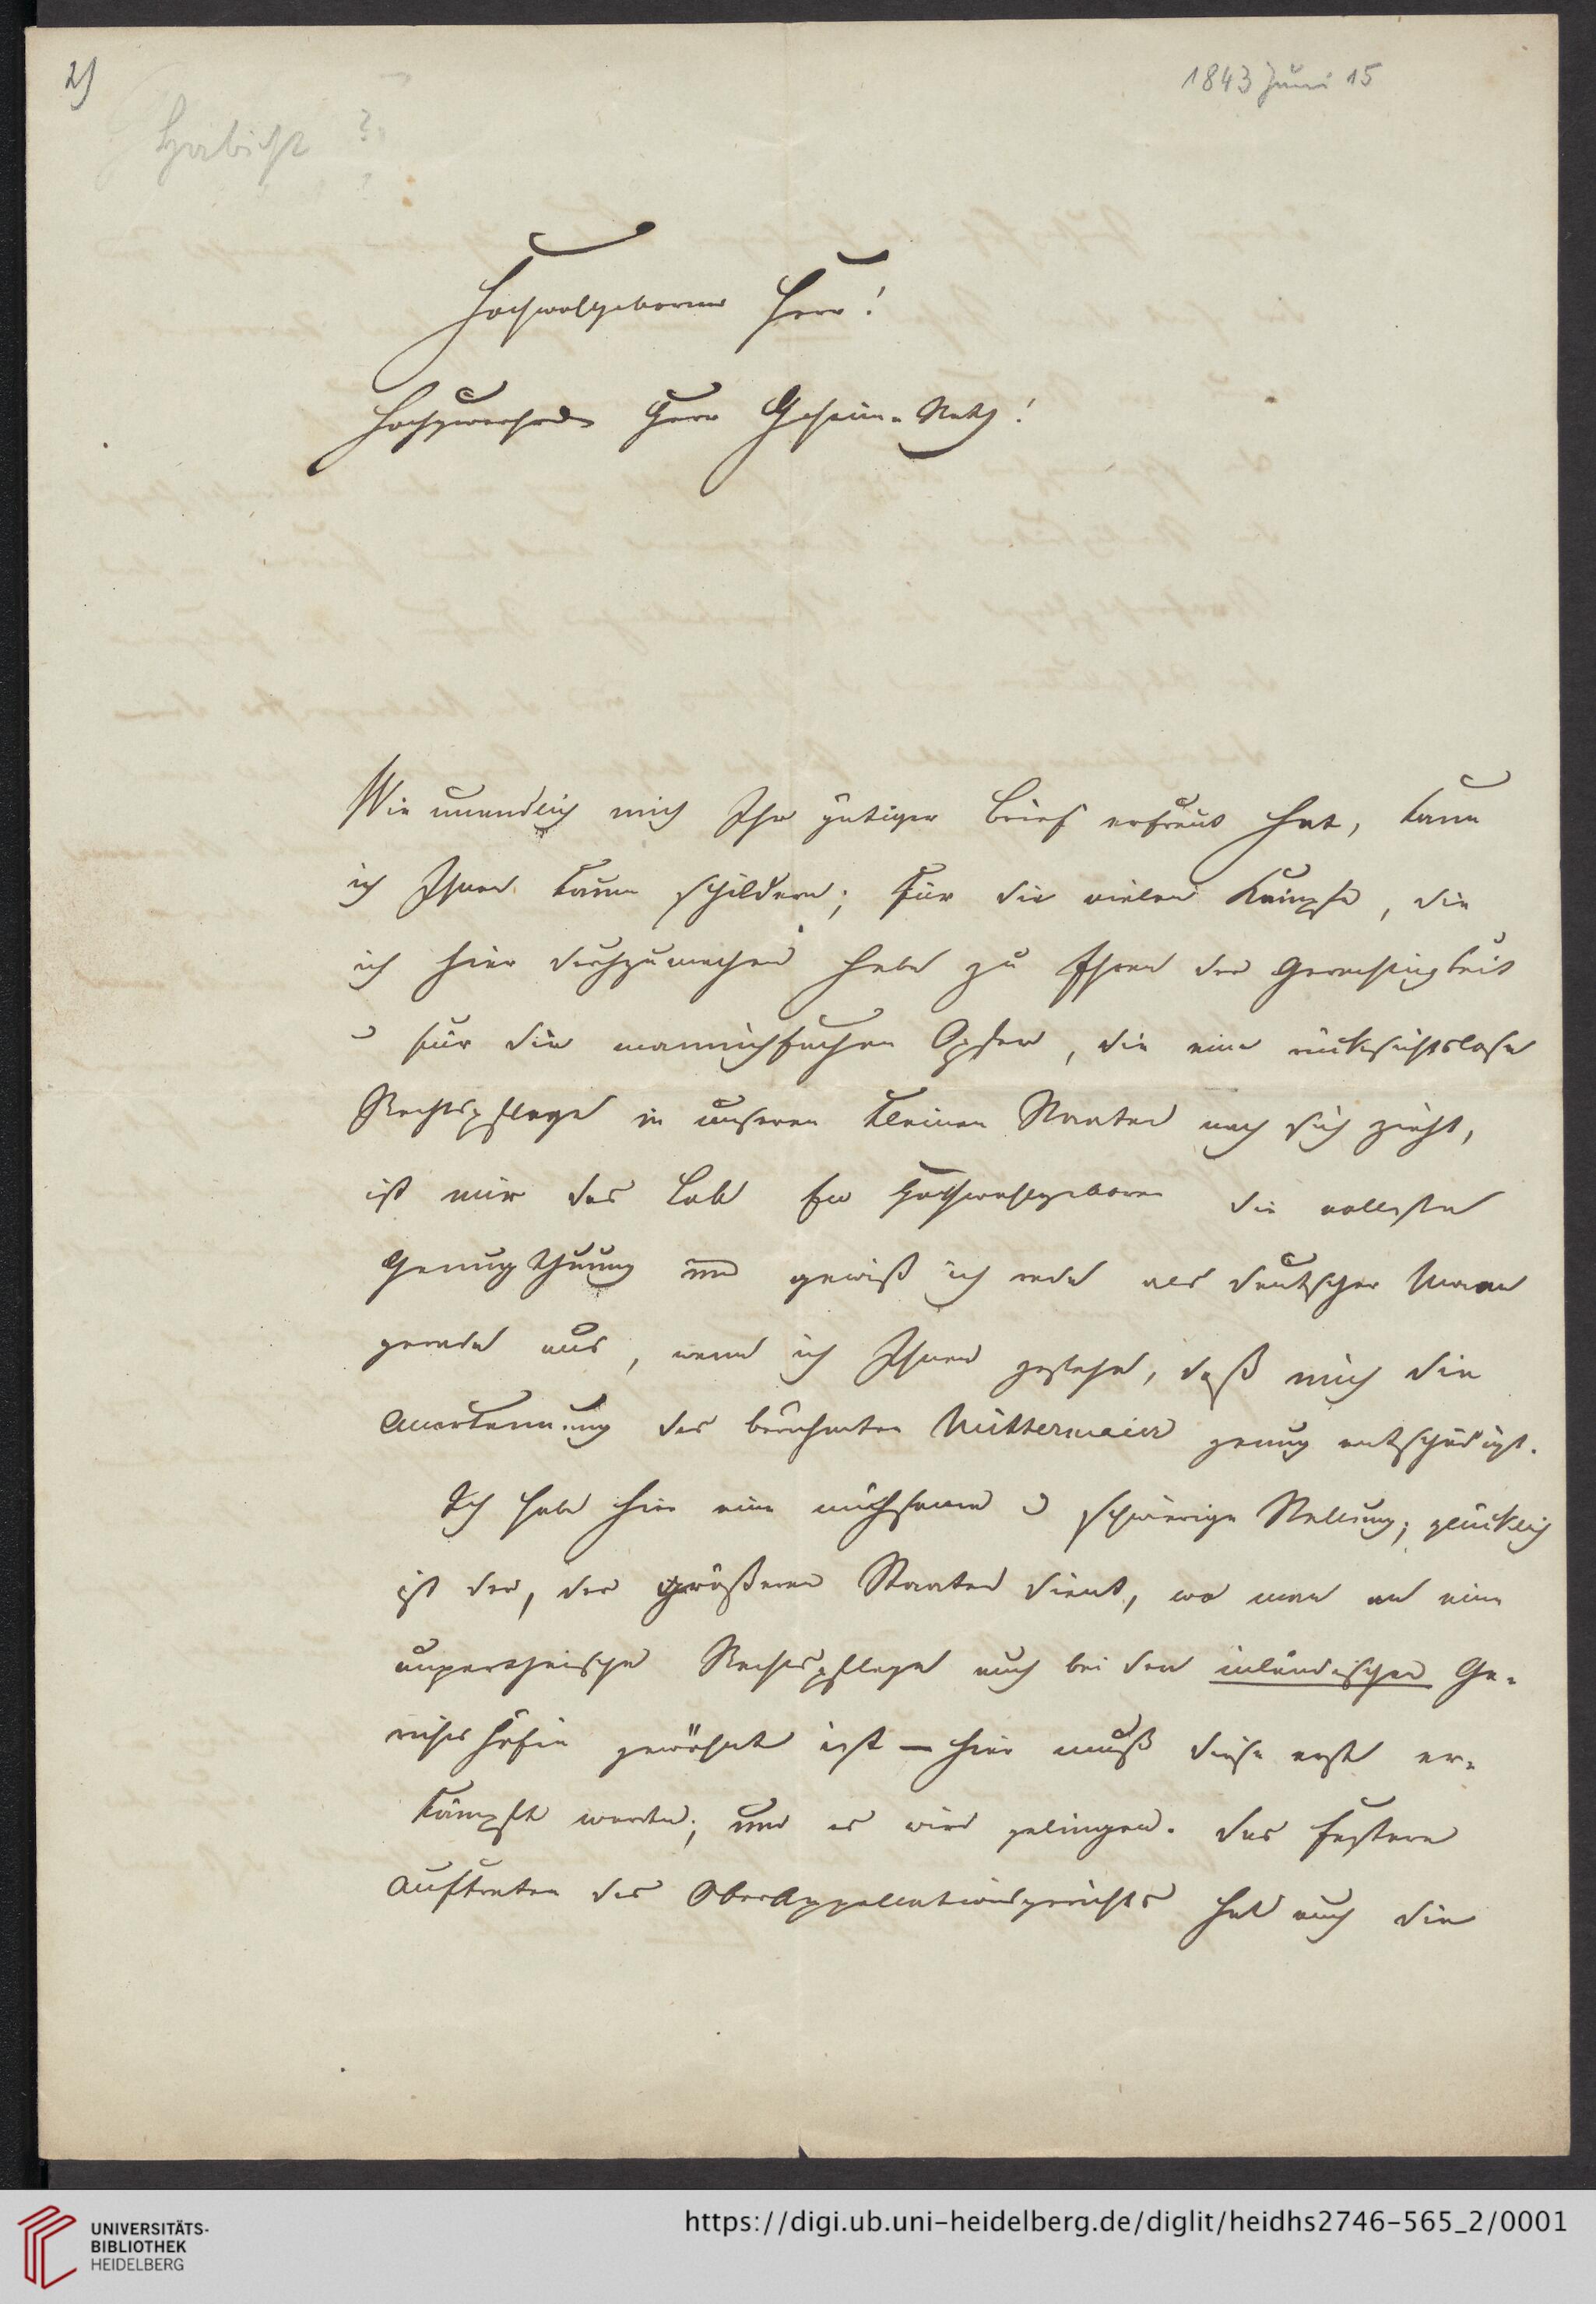 2)
1843 Juni 15
Habicht ?
Hochwolgeborner Herr!
Hochzuverehrender Herr Geheime-Rath!
Wie unendlich mich Ihr gütiger Brief erfreut hat, kann
ich Ihnen kaum schildern; für die vielen Kämpfe, die
ich hier durchzumachen habe zu Ehren der Gerechtigkeit
u für die mannichfachen Opfer, die eine rücksichtslose
Rechtspflege in unseren kleinen Staaten nach sich zieht,
ist mir das Lob Ew Hochwohlgeboren die vollste
Genugthuung und gewiß ich rede als deutscher Mann
gerade aus, wenn ich Ihnen gestehe, daß mich die
Anerkennung des berühmten Mittermaier genug entschädigt.
Ich habe hier eine mühsame u schwierige Stellung; glücklich
ist der, der größeren Staaten dient, wo man an eine
unpartheiische Rechtspflege auch bei den inländischen Ge-
richtshöfen gewöhnt ist – hier muß diese erst er-
kämpft werden; und es wird gelingen. Das festere
Auftreten des OberAppellationsgerichts hat auch die
UNIVERSITÄTS-
BIBLIOTHEK
HEIDELBERG
https://digi.ub.uni-heidelberg.de/diglit/heidhs2746-565_2/0001